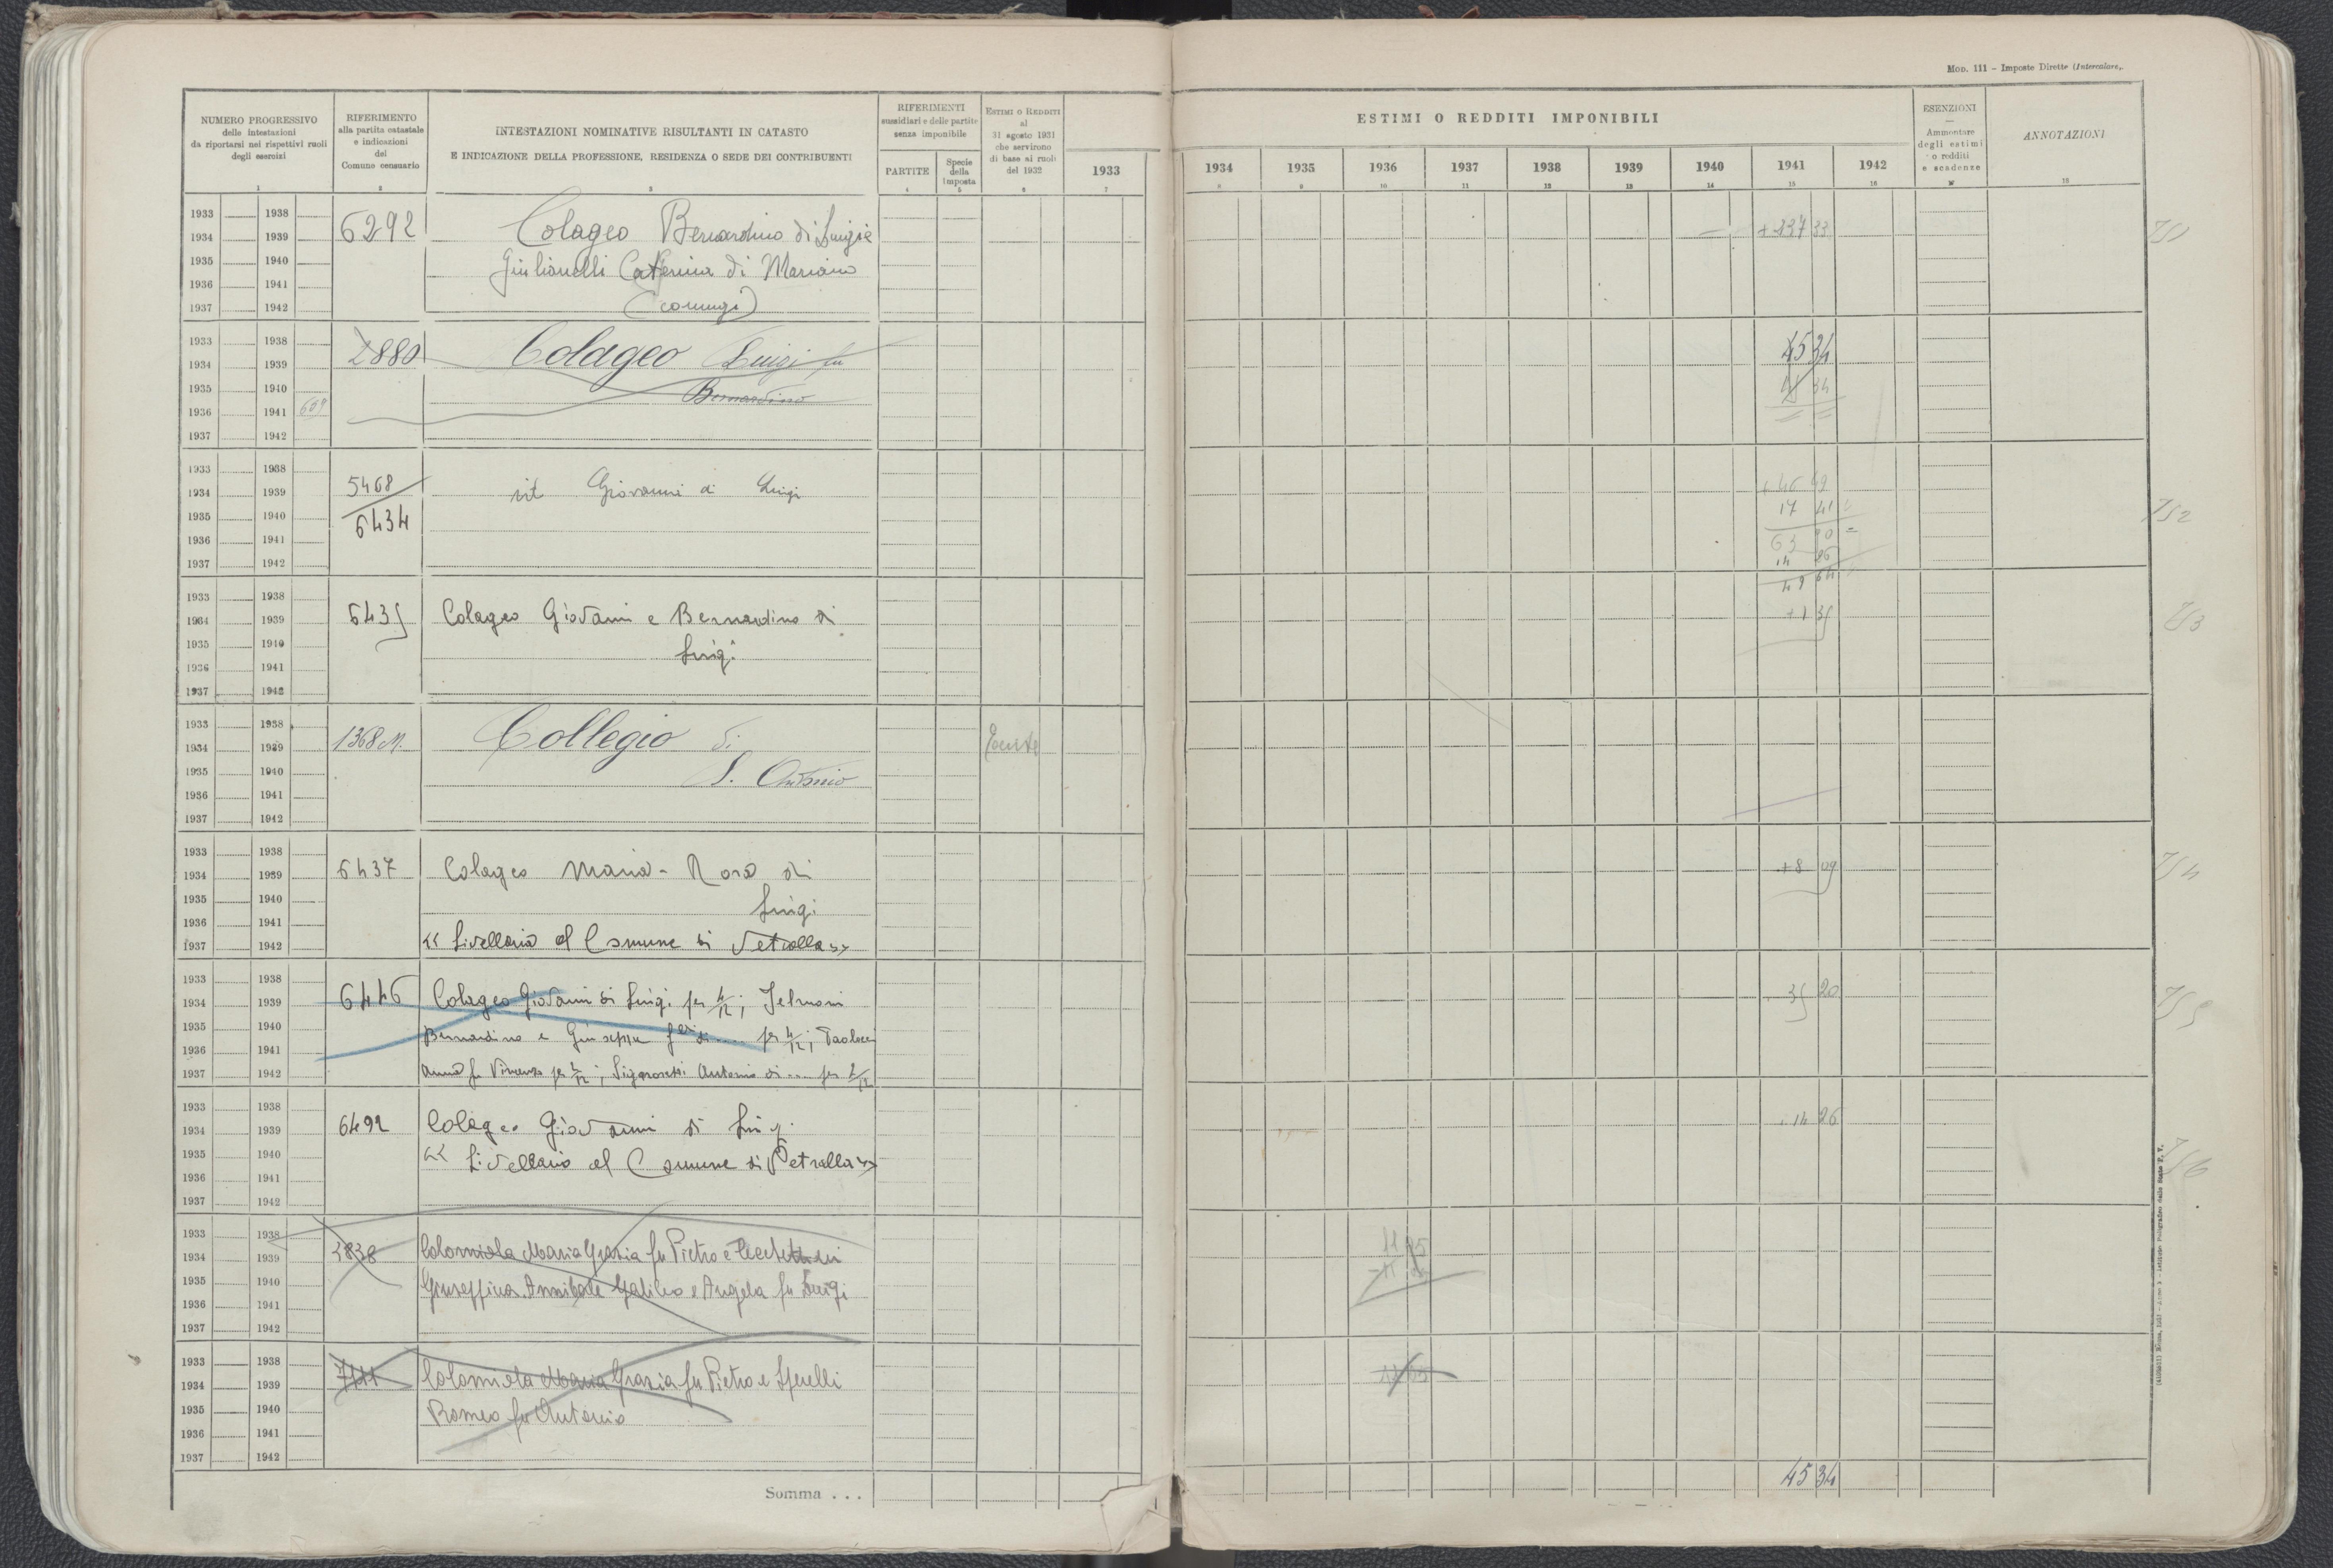 Mod. 111 - Imposte Dirette (Intercalare).
NUMERO PROGRESSIVO
delle intestazioni
da riportarsi nei rispettivi ruoli
degli esercizi
1
RIFERIMENTO
alla partita catastale
e indicazioni
del
Comune censuario
2
INTESTAZIONI NOMINATIVE RISULTANTI IN CATASTO
E INDICAZIONE DELLA PROFESSIONE, RESIDENZA O SEDE DEI CONTRIBUENTI
3
RIFERIMENTI
sussidiari e delle partite
senza imponibile
PARTITE
4
Specie
della
imposta
5
ESTIMI O REDDITI
al
31 agosto 1931
che servirono
di base ai ruoli
del 1932
6
1933
7
ESTIMI O REDDITI IMPONIBILI
1934 1935 1936 1937 1938 1939 1940 1941 1942
8 9 10 11 12 13 14 15 16
ESENZIONI
—
Ammontare
degli estimi
o redditi
e scadenze
17
ANNOTAZIONI
18
1933 1938
1934 1939 6292 Colageo Bernardino di Luigi e
1935 1940 Giulianelli Caterina di Mariano
1936 1941
1937 1942 (coniugi)
1933 1938 2880 Colageo Luigi fu 45 34
1934 1939
1935 1940 Bernardino
1936 1941
1937 1942
1933 1938 5468
1934 1939 Giovanni di Luigi
1935 1940 6434 17 41 752
1936 1941
1937 1942 49 64
1933 1938
1934 1939 6435 Colageo Giovanni e Bernardino di +1 35 753
1935 1940 Luigi
1936 1941
1937 1942
1933 1938
1934 1939 1368 M. Collegio di Esente
1935 1940 S. Antonio
1936 1941
1937 1942
1933 1938
1934 1939 6437 Colageo Maria-Rosa di +8 09 754
1935 1940 Luigi
1936 1941
1937 1942 « Livellaria al Comune di Vetralla »
1933 1938
1934 1939 6446 Colageo Giovanni di Luigi per 4/12; 35 20 755
1935 1940 Bernardino e Giuseppe di .... per 4/12; Paolocci
1936 1941
1937 1942 Anna fu Vincenzo per 2/12; Antonio di ... per 2/12
1933 1938
1934 1939 6492 Colageo Giovanni di Luigi 14 26
1935 1940 « Livellario al Comune di Vetralla » 756
1936 1941
1937 1942
1933 1938
1934 1939 Maria Grazia fu Pietro e
1935 1940 Giuseppina Annibale Galileo e Angela fu Luigi
1936 1941
1937 1942
1933 1938
1934 1939 Maria Grazia fu Pietro e Sferelli
1935 1940 Romeo fu Antonio
1936 1941
1937 1942
Somma . . . 45 34